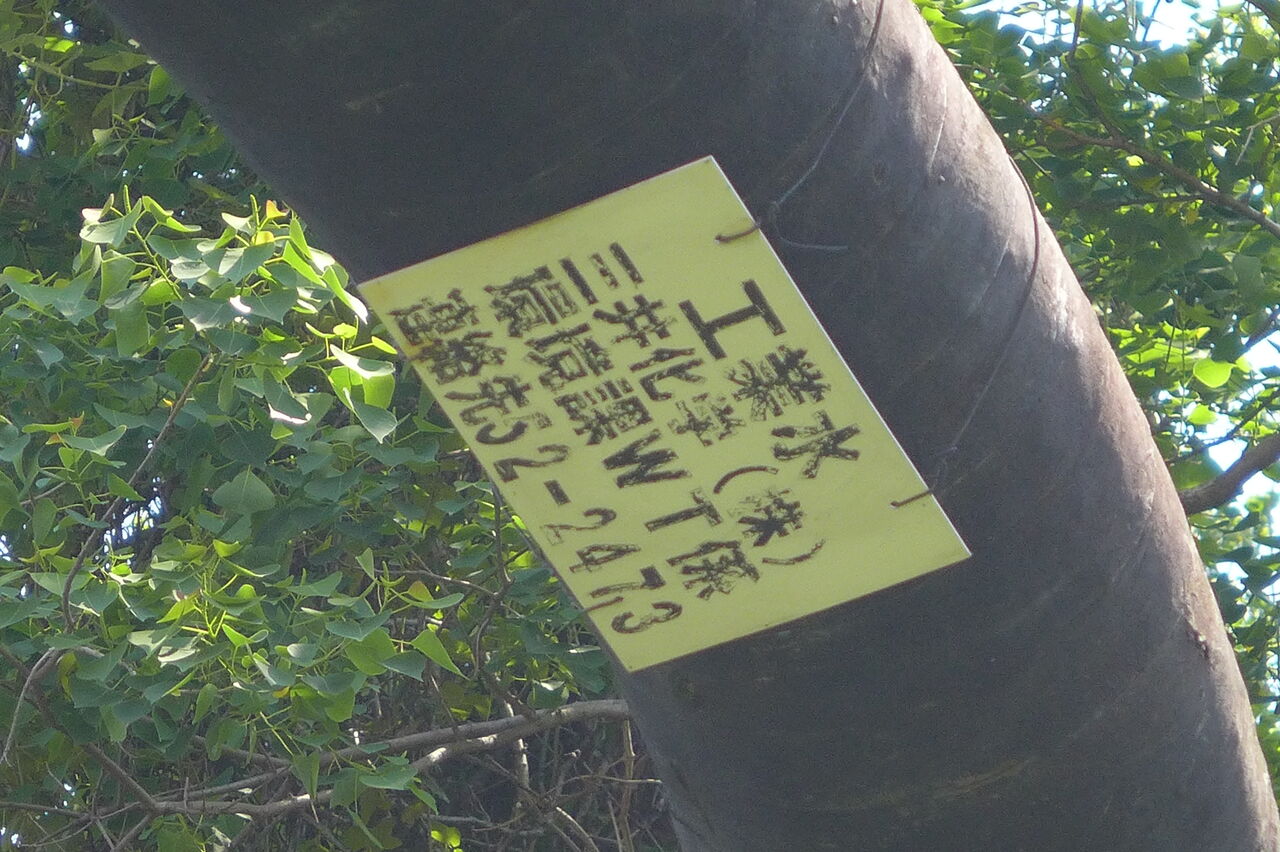 工業水
三井化学(株)
環境課WT係
連絡先52-2473